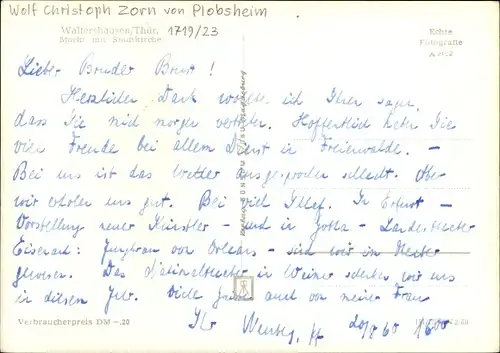 Wolf Christoph Zorn von Plobsheim
Waltershausen/Thür. 1719/23
Markt mit Stadtkirche
Echte
Fotografie
Lieber Bruder Brust!
Herzlichen Dank wollte ich Ihnen sagen,
dass Sie mich morgen vertreten. Hoffentlich hatten Sie
viel Freude bei allem Dienst in Freienwalde. –
Bei uns ist das Wetter ausgesprochen schlecht. Aber
wir erholen uns gut. Bei viel In Erfurt –
Vorstellung neuer Künstler – und in Gotha – Landestheater
Eisenach: Jungfrau von Orleans – sind wir im Theater
gewesen. Das Nationaltheater in Weimar schenken wir uns
in diesem Jahr. Viele Grüße auch von meiner Frau
Ihr
Verbraucherpreis DM –,20